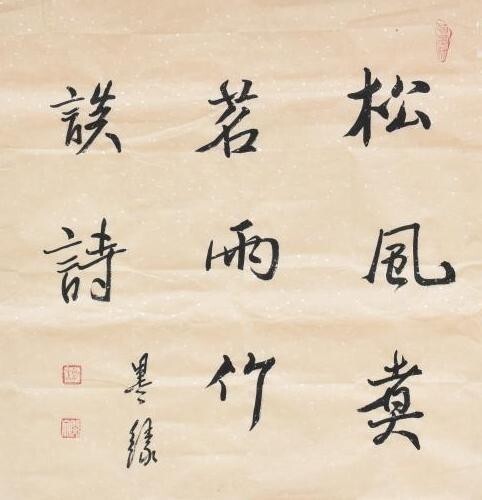 松風煮
茗雨竹
談詩
墨緣